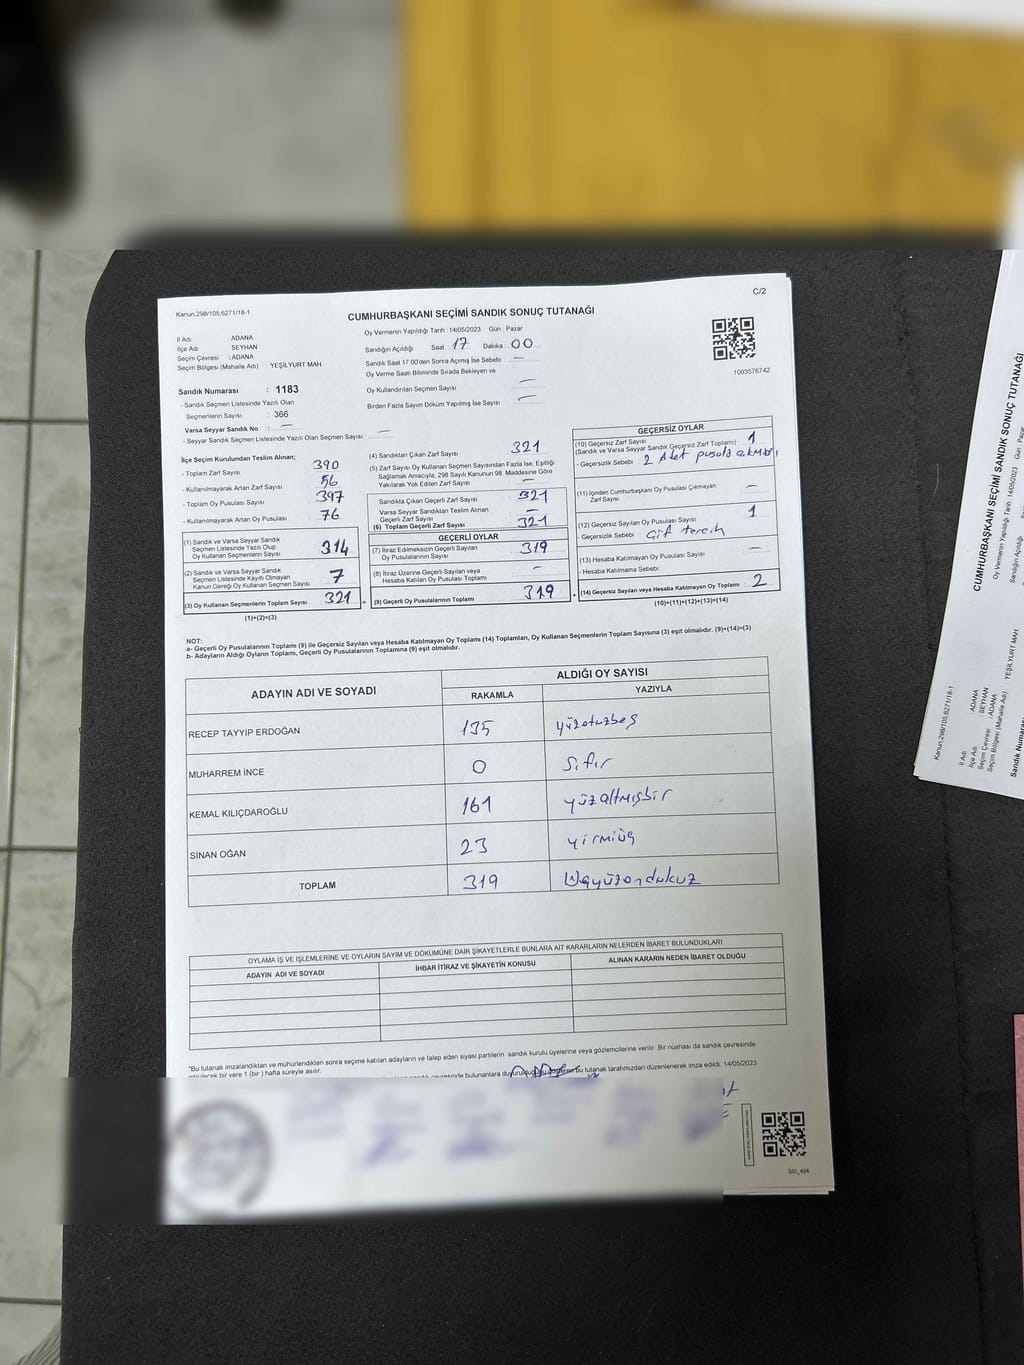 C/2
Kanun.298/105,6271/18-1
CUMHURBAŞKANI SEÇİMİ SANDIK SONUÇ TUTANAĞI
İl Adı ADANA
İlçe Adı SEYHAN
Seçim Çevresi : ADANA
Seçim Bölgesi (Mahalle Adı) YEŞİLYURT MAH
Sandık Numarası : 1183
- Sandık Seçmen Listesinde Yazılı Olan
Seçmenlerin Sayısı : 366
Varsa Seyyar Sandık No : —
- Seyyar Sandık Seçmen Listesinde Yazılı Olan Seçmen Sayısı —
Oy Vermenin Yapıldığı Tarih : 14/05/2023 Gün : Pazar
Sandığın Açıldığı Saat 17 Dakika 00
Sandık Saat 17.00'den Sonra Açılmış İse Sebebi —
Oy Verme Saati Bitiminde Sırada Bekleyen ve
Oy Kullandırılan Seçmen Sayısı —
Birden Fazla Sayım Döküm Yapılmış İse Sayısı —
1093576742
İlçe Seçim Kurulundan Teslim Alınan;
- Toplam Zarf Sayısı 390
- Kullanılmayarak Artan Zarf Sayısı 56
- Toplam Oy Pusulası Sayısı 397
- Kullanılmayarak Artan Oy Pusulası 76
(1) Sandık ve Varsa Seyyar Sandık
Seçmen Listesinde Yazılı Olup
Oy Kullanan Seçmenlerin Sayısı 314
(2) Sandık ve Varsa Seyyar Sandık
Seçmen Listesinde Kayıtlı Olmayan
Kanun Gereği Oy Kullanan Seçmen Sayısı 7
(3) Oy Kullanan Seçmenlerin Toplam Sayısı 321
(1)+(2)=(3)
(4) Sandıktan Çıkan Zarf Sayısı 321
(5) Zarf Sayısı Oy Kullanan Seçmen Sayısından Fazla İse, Eşitliği
Sağlamak Amacıyla, 298 Sayılı Kanunun 98. Maddesine Göre
Yakılarak Yok Edilen Zarf Sayısı —
Sandıkta Çıkan Geçerli Zarf Sayısı 321
Varsa Seyyar Sandıktan Teslim Alınan
Geçerli Zarf Sayısı —
(6) Toplam Geçerli Zarf Sayısı 321
GEÇERLİ OYLAR
(7) İtiraz Edilmeksizin Geçerli Sayılan
Oy Pusulalarının Sayısı 319
(8) İtiraz Üzerine Geçerli Sayılan veya
Hesaba Katılan Oy Pusulası Toplamı -
(9) Geçerli Oy Pusulalarının Toplamı 319
GEÇERSİZ OYLAR
(10) Geçersiz Zarf Sayısı
(Sandık ve Varsa Seyyar Sandık Geçersiz Zarf Toplamı) 1
- Geçersizlik Sebebi 2 Adet pusula
(11) İçinden Cumhurbaşkanı Oy Pusulası Çıkmayan
Zarf Sayısı —
(12) Geçersiz Sayılan Oy Pusulası Sayısı 1
- Geçersizlik Sebebi Çift tercih
(13) Hesaba Katılmayan Oy Pusulası Sayısı —
- Hesaba Katılmama Sebebi
(14) Geçersiz Sayılan veya Hesaba Katılmayan Oy Toplamı 2
(10)+(11)+(12)+(13)=(14)
NOT:
a- Geçerli Oy Pusulalarının Toplamı (9) ile Geçersiz Sayılan veya Hesaba Katılmayan Oy Toplamı (14) Toplamları, Oy Kullanan Seçmenlerin Toplam Sayısına (3) eşit olmalıdır. (9)+(14)=(3)
b- Adayların Aldığı Oyların Toplamı, Geçerli Oy Pusulalarının Toplamına (9) eşit olmalıdır.
ADAYIN ADI VE SOYADI ALDIĞI OY SAYISI
RAKAMLA YAZIYLA
RECEP TAYYİP ERDOĞAN 135 yüzotuzbeş
MUHARREM İNCE 0 sıfır
KEMAL KILIÇDAROĞLU 161 yüzaltmışbir
SİNAN OĞAN 23 yirmiüç
TOPLAM 319 Üçyüzondokuz
OYLAMA İŞ VE İŞLEMLERİNE VE OYLARIN SAYIM VE DÖKÜMÜNE DAİR ŞİKAYETLERLE BUNLARA AİT KARARLARIN NELERDEN İBARET BULUNDUKLARI
ADAYIN ADI VE SOYADI İHBAR İTİRAZ VE ŞİKAYETİN KONUSU ALINAN KARARIN NEDEN İBARET OLDUĞU
"Bu tutanak imzalandıktan ve mühürlendikten sonra seçime katılan adayların ve talep eden siyasi partilerin sandık kurulu üyelerine veya gözlemcilerine verilir. Bir nüshası da sandık çevresinde
görülecek bir yere 1 (bir) hafta süreyle asılır.
çevresinde bulunanlara bu tutanak tarafımızdan düzenlenerek imza edildi. 14/05/2023
SSI_404
CUMHURBAŞKANI SEÇİMİ SANDIK SONUÇ TUTANAĞI
Kanun.298/105,6271/18-1
İl Adı : ADANA
İlçe Adı : SEYHAN
Seçim Çevresi : ADANA
Seçim Bölgesi (Mahalle Adı) YEŞİLYURT MAH.